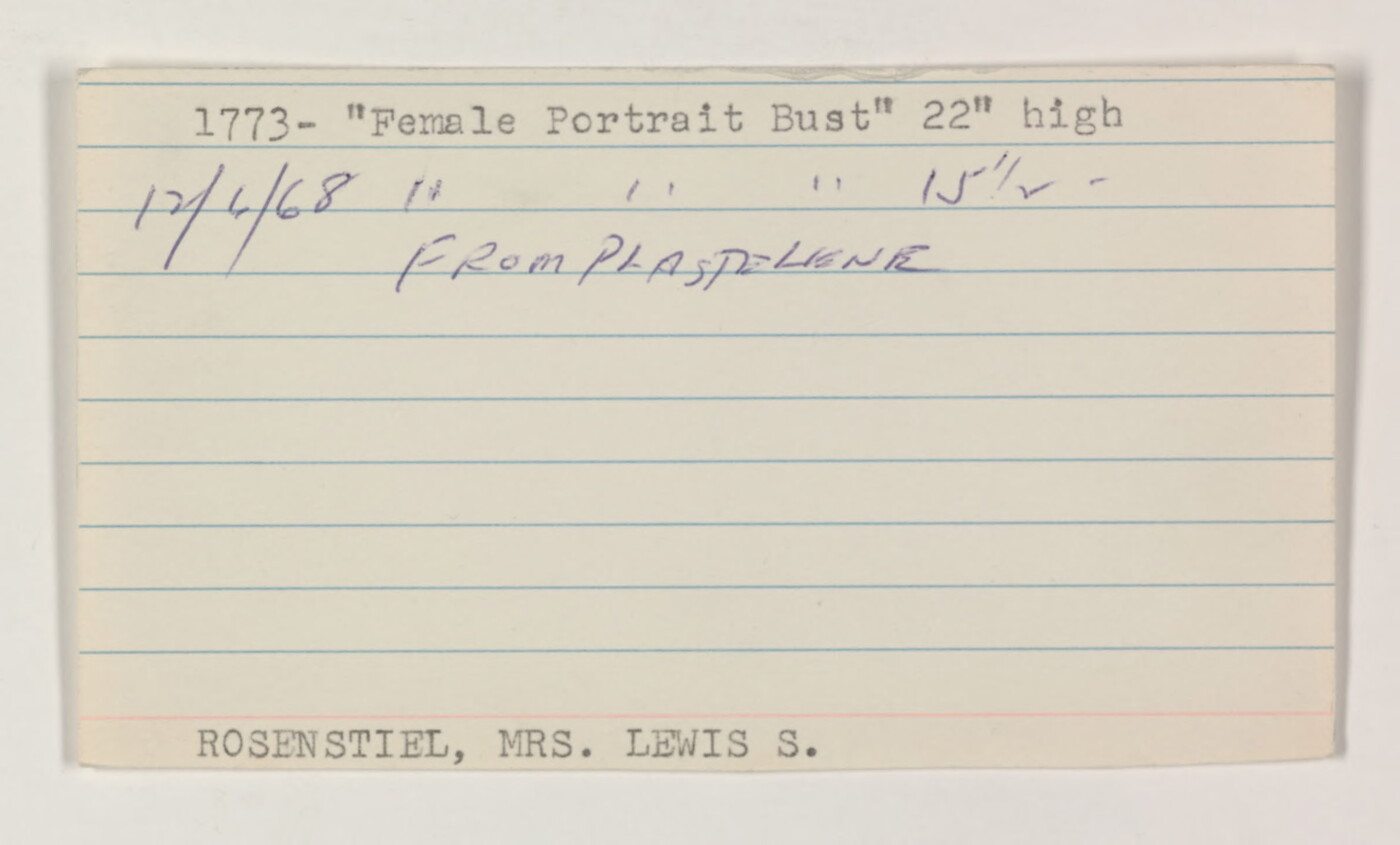 1773- "Female Portrait Bust" 22" high
12/6/68 " " " 15 1/2 -
FROM PLASTELENE
ROSENSTIEL, MRS. LEWIS S.